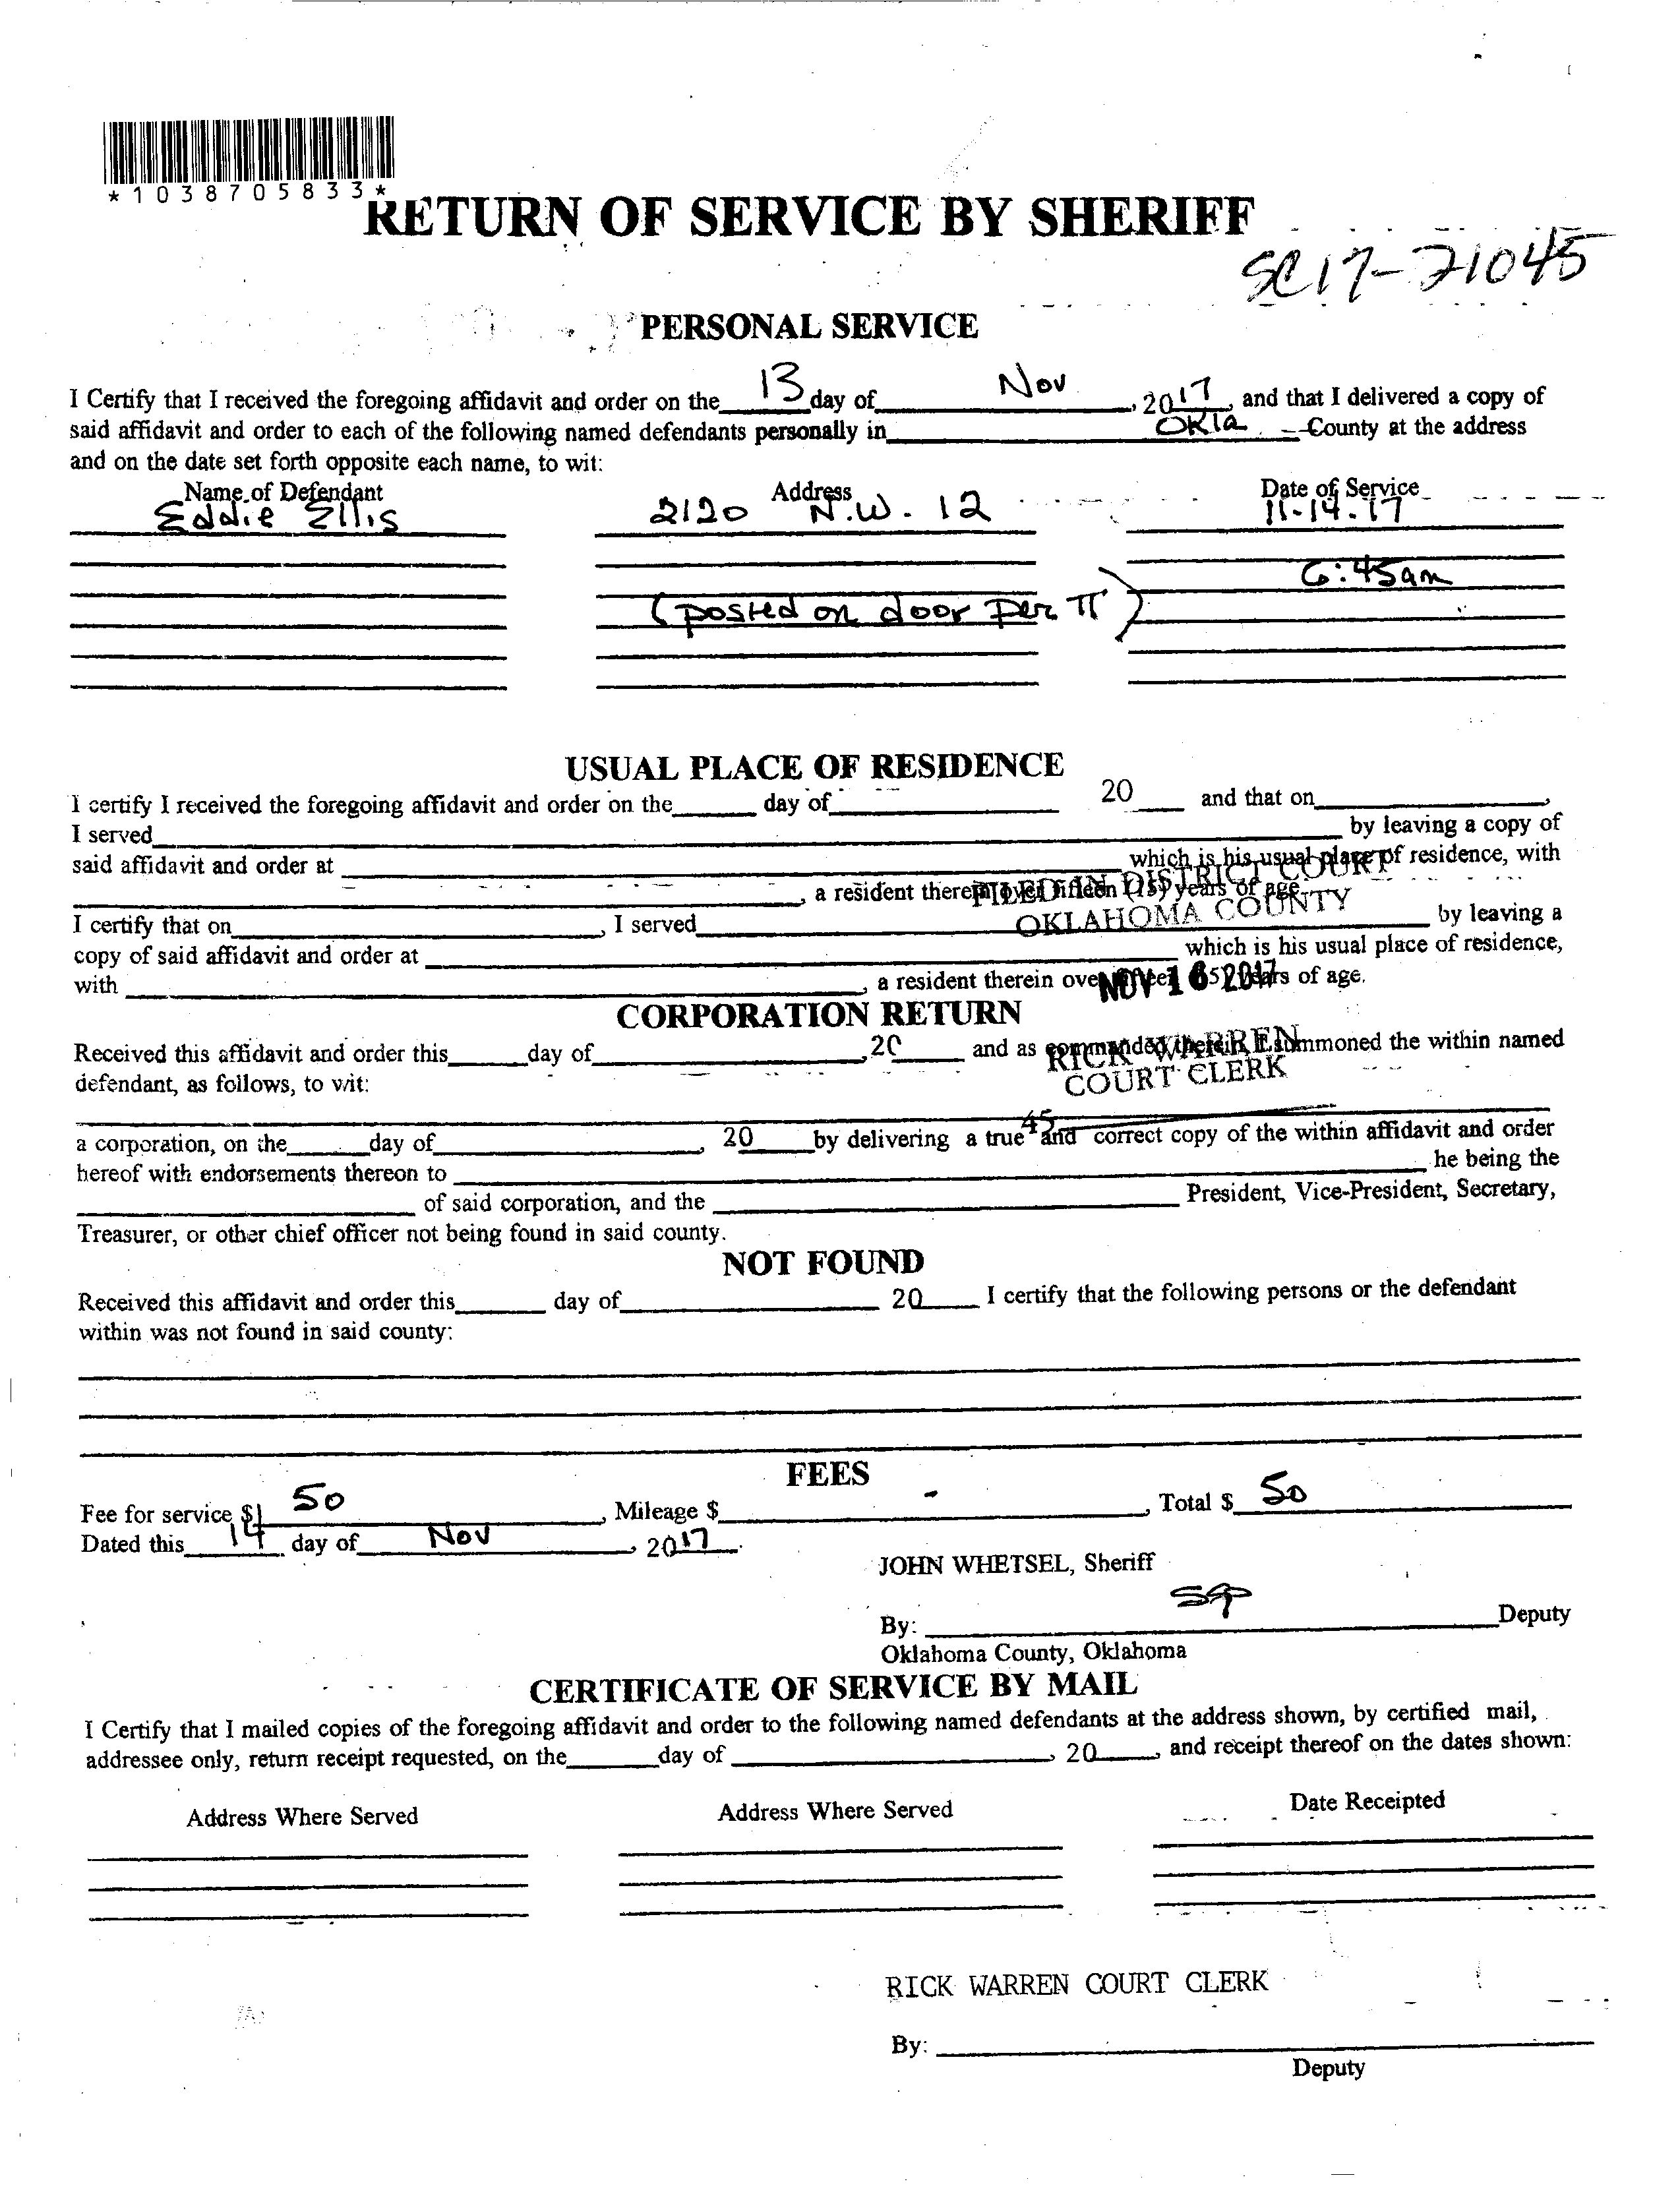 *1038705833*
RETURN OF SERVICE BY SHERIFF
SC17-21045
PERSONAL SERVICE
I Certify that I received the foregoing affidavit and order on the 13 day of Nov, 2017, and that I delivered a copy of
said affidavit and order to each of the following named defendants personally in Okla. County at the address
and on the date set forth opposite each name, to wit:
Name of Defendant Address Date of Service
Eddie Ellis 2120 N.W. 12 11-14-17
6:45am
(posted on door per π)
USUAL PLACE OF RESIDENCE
I certify I received the foregoing affidavit and order on the ____ day of ____ 20____ and that on ____,
I served ____ by leaving a copy of
said affidavit and order at ____ which is his usual place of residence, with
____, a resident therein over fifteen (15) years of age.
FILED IN DISTRICT COURT
OKLAHOMA COUNTY
I certify that on ____, I served ____ by leaving a
copy of said affidavit and order at ____ which is his usual place of residence,
with ____, a resident therein over fifteen (15) years of age.
NOV 16 2017
CORPORATION RETURN
Received this affidavit and order this ____ day of ____, 20____ and as commanded therein, I summoned the within named
RICK WARREN
defendant, as follows, to wit:
COURT CLERK
45
a corporation, on the ____ day of ____, 20____ by delivering a true and correct copy of the within affidavit and order
hereof with endorsements thereon to ____ he being the
____ of said corporation, and the ____ President, Vice-President, Secretary,
Treasurer, or other chief officer not being found in said county.
NOT FOUND
Received this affidavit and order this ____ day of ____ 20____ I certify that the following persons or the defendant
within was not found in said county:
FEES
Fee for service $ 50, Mileage $ -, Total $ 50
Dated this 14 day of Nov, 2017.
JOHN WHETSEL, Sheriff
By: ____ Deputy
Oklahoma County, Oklahoma
CERTIFICATE OF SERVICE BY MAIL
I Certify that I mailed copies of the foregoing affidavit and order to the following named defendants at the address shown, by certified mail,
addressee only, return receipt requested, on the ____ day of ____, 20____, and receipt thereof on the dates shown:
Address Where Served Address Where Served Date Receipted
RICK WARREN COURT CLERK
By: ____
Deputy